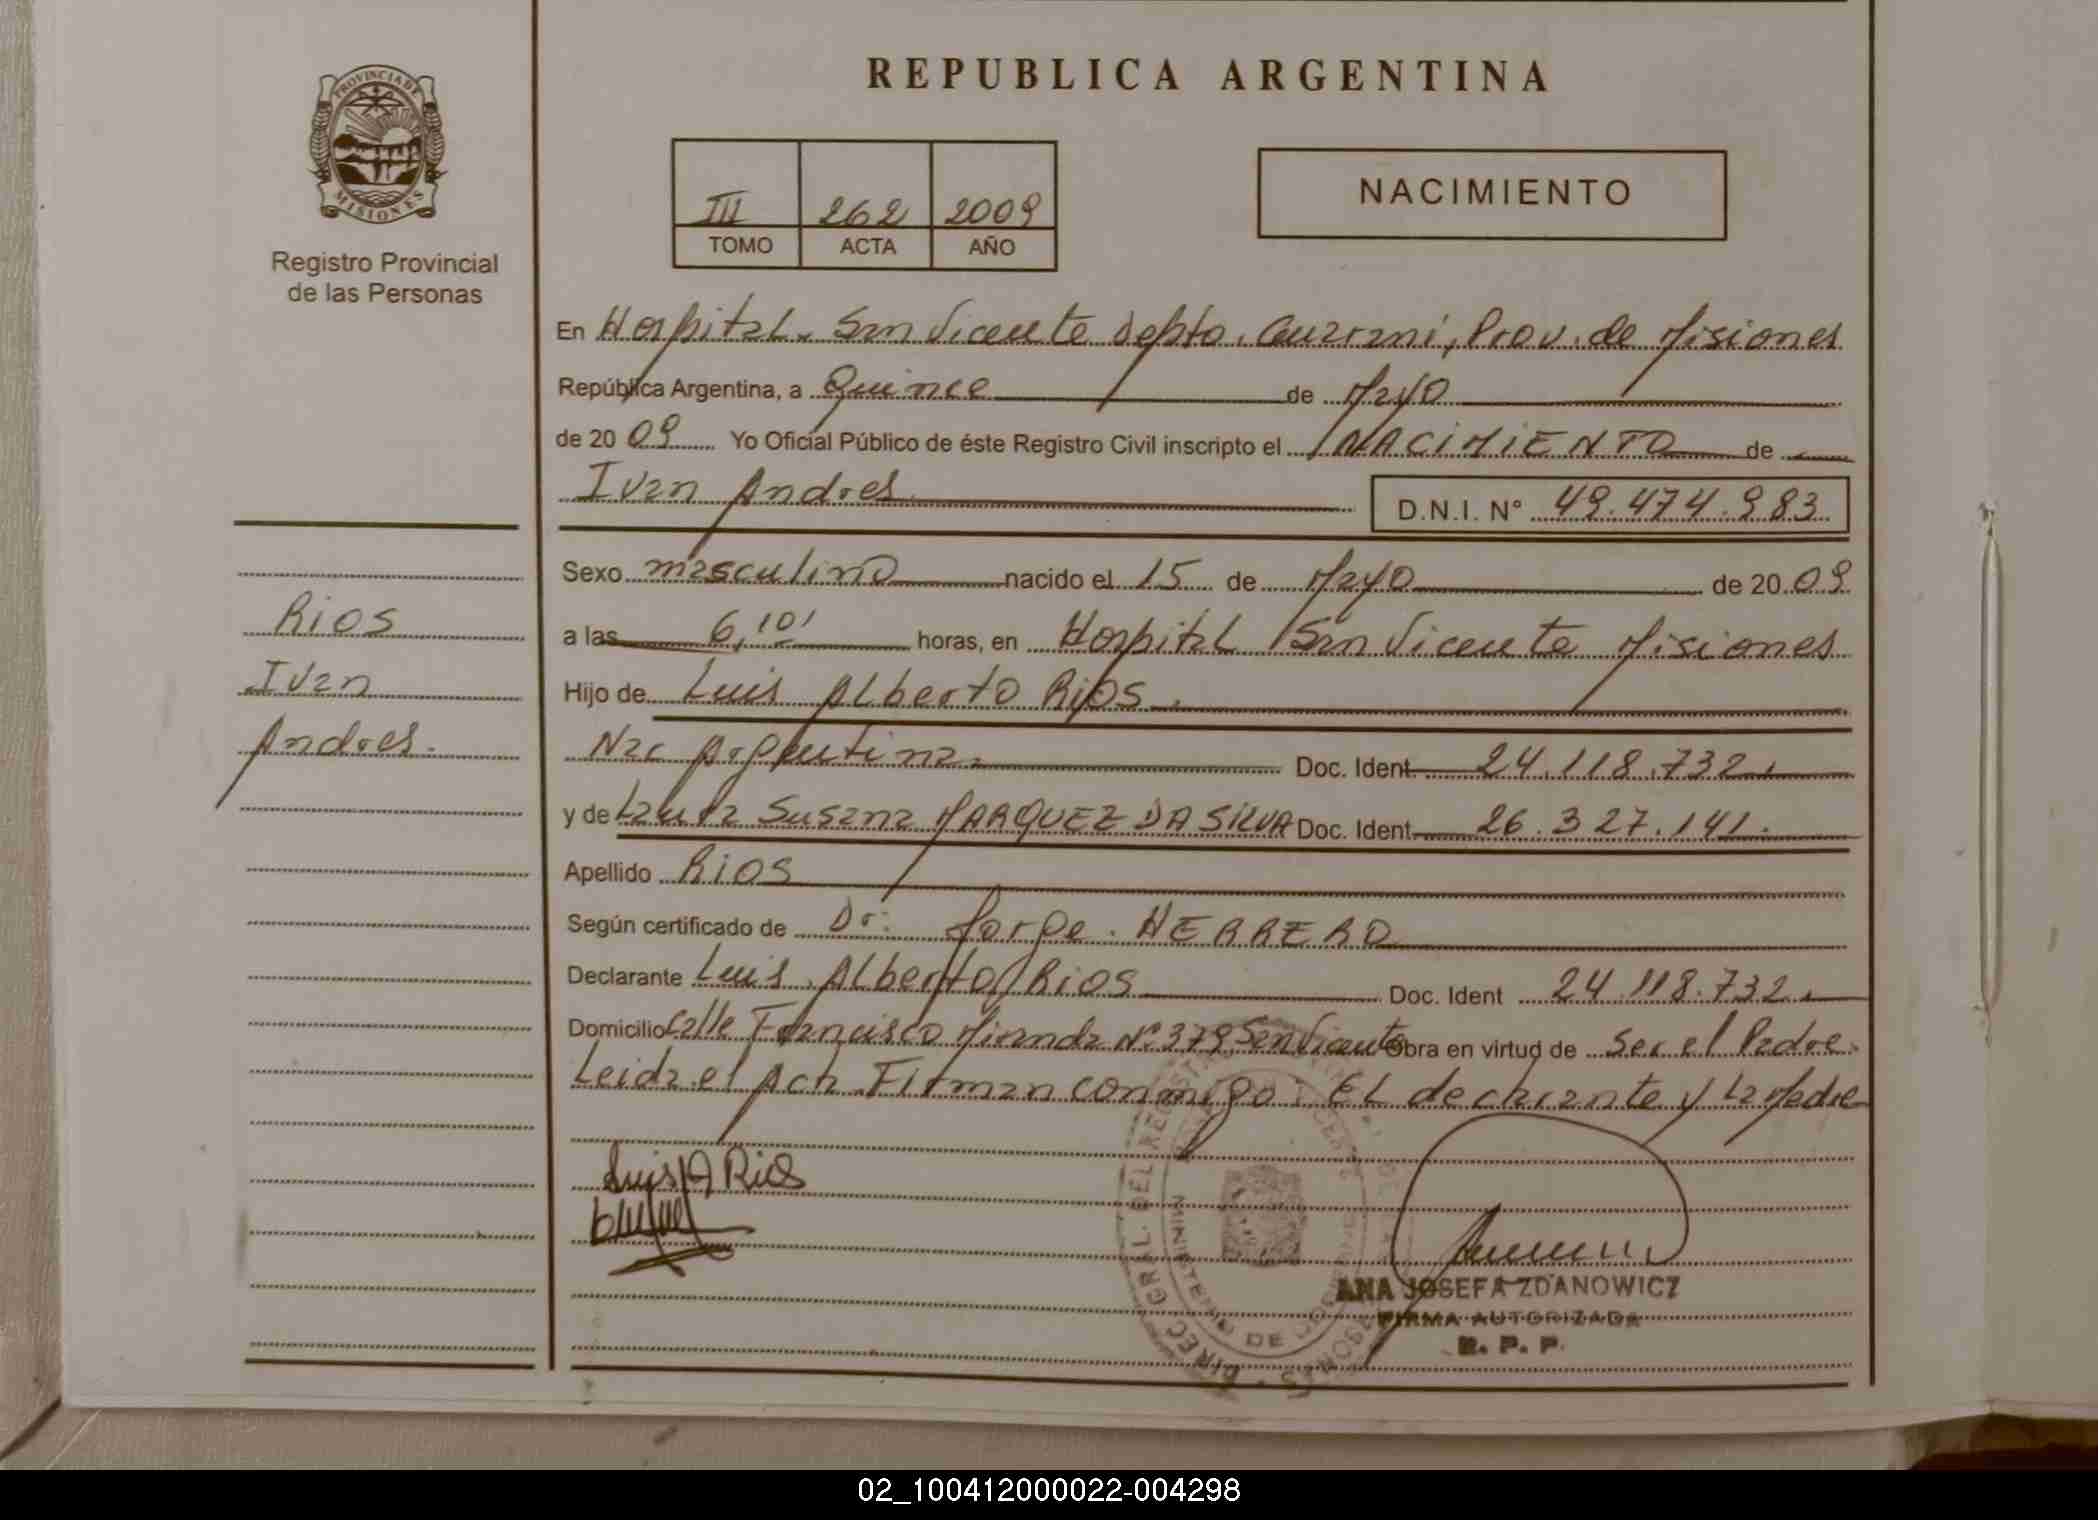 REPUBLICA ARGENTINA
PROVINCIA DE
MISIONES
Registro Provincial
de las Personas
III 262 2009
TOMO ACTA AÑO
NACIMIENTO
En Hospital San Vicente Depto. Guarani, Prov. de Misiones
República Argentina, a Quince de Mayo
de 20 09 Yo Oficial Público de éste Registro Civil inscripto el NACIMIENTO de
Ivan Andres D.N.I. N° 49.474.983
Sexo masculino nacido el 15 de Mayo de 20 09
a las 6,10' horas, en Hospital San Vicente Misiones
Hijo de Luis Alberto Rios.
Nac Argentina. Doc. Ident 24.118.732.
y de Laura Susana MARQUEZ DA SILVA Doc. Ident 26.327.141.
Apellido Rios
Según certificado de Dr: Jorge HERRERO
Declarante Luis Alberto Rios Doc. Ident 24.118.732.
Domicilio Calle Francisco Miranda N° 379 San Vicente Obra en virtud de Ser el Padre.
Leida el Acta Firman conmigo: El declarante y La Madre
Rios
Ivan
Andres.
Luis A Rios
ANA JOSEFA ZDANOWICZ
FIRMA AUTORIZADA
R. P. P.
02_100412000022-004298